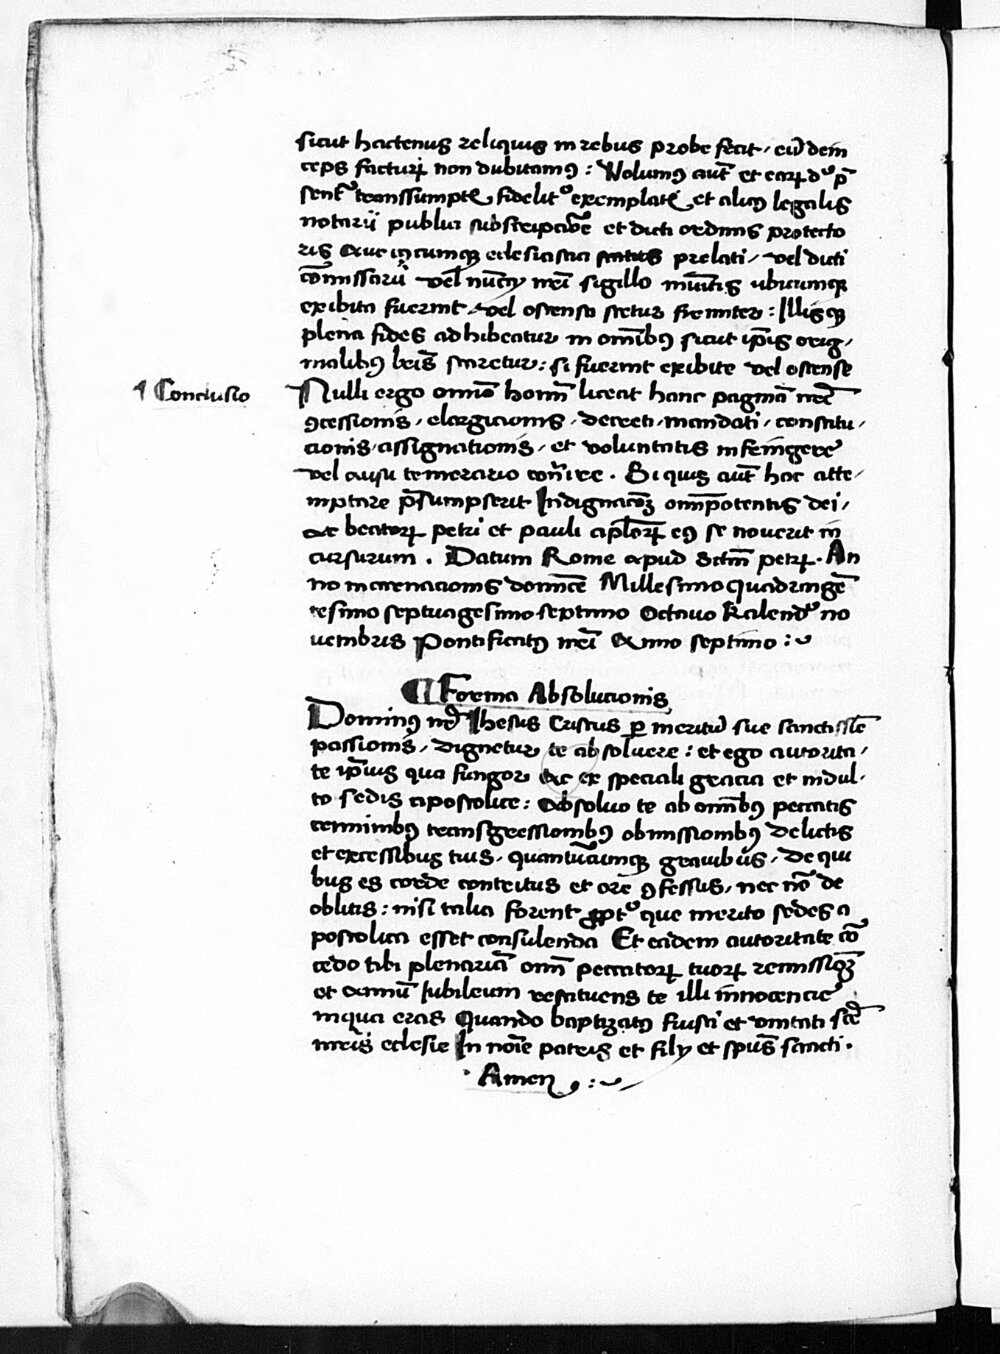 sicut hactenus reliquis in rebus probe fecit, eū dein
ceps facturꝝ non dubitamꝰ : Volumꝰ aut̄ et earꝝdꝰ p̄
sentꝰ transsumptꝭ fidelitꝰ exemplatꝭ et alicꝰ legalis
notarij publici subscripcōe et dicti ordinis protecto
ris aut cuiuscumqꝫ eclesiastici status prelati, vel dicti
cōmissarij vel nuncij nr̄i sigillo mūitis ubicumqꝫ
exhibita fuerint vel ostensa stetur firmiter : Illisqꝫ
plena fides adhibeatur in om̄ibꝰ sicut ip̄is orig,
inalibꝰ lr̄is staretur : si fuerint exibite vel ostense
¶ Conclusio
Nulli ergo omīo homī liceat hanc paginā nr̄e
ꝯcessionis, elargicionis, decreti, mandati, constitu,
cionis, assignationis, et voluntatis infringere
vel ausu temerario cōn̄ire . Si quis aut̄ hoc atte,
mptare p̄sumpserit Indignacōꝫ om̄ipotentis dei,
ac beatorꝝ petri et pauli ap̄lorꝝ eꝰ se noverit in
cursurum . Datum Rome apud Sctm̄ petrꝝ . An
no incarnacionis dominice Millesimo Quadringē
tesimo septuagesimo septimo Octavo Kalendꝰ no
uembris Pontificatꝰ nr̄i Anno septimo :~
¶ Forma Absolucionis
Dominꝰ nr̄ Ihesus Cristus ꝑ meritū sue sanctissīe
passionis, dignetur te absoluere : et ego autorita,
te ip̄ius qua fungor ac ex speciali gracia et indul,
to sedis apostolice : Absoluo te ab om̄ibꝰ peccatis
criminibꝰ transgressionibꝰ obmissionibꝰ delictis
et excessibus tuis, quantūcumqꝫ grauibus, de qui
bus es corde contritus et ore ꝯfessus, nec nō de
oblitis : nisi talia forent ꝓptꝰ que merito sedes a
postolica esset consulenda Et eadem autoritate cō
cedo tibi plenariā om̄ peccatorꝝ tuorꝝ remissiōꝫ
et annū Jubileum restituens te illi innocencie
in qua eras Quando baptizatꝰ fuisti et vnitati scē
mr̄is eclesie In noīe patris et filij et sp̄us sancti .
Amen :~